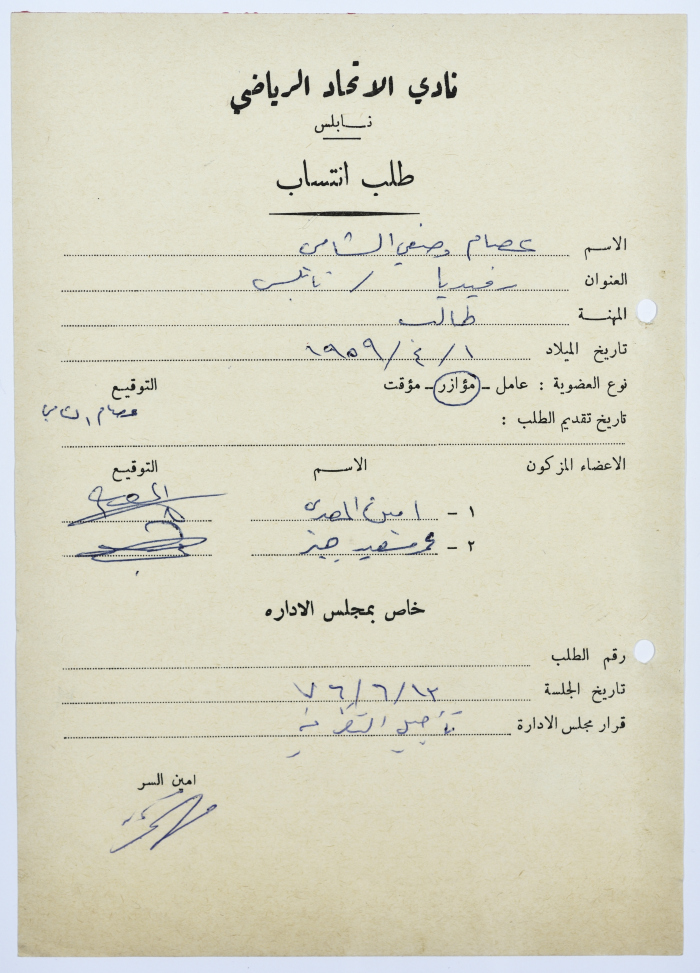 نادي الاتحاد الرياضي
نابلس
طلب انتساب
الاسم عصام وصفي الشامي
العنوان رفيديا / نابلس
المهنة طالب
تاريخ الميلاد ١ / ٤ / ١٩٥٩
نوع العضوية : عامل - مؤازر - مؤقت التوقيع
تاريخ تقديم الطلب : عصام الشامي
الاعضاء المزكون الاسم التوقيع
١ - امين المصري
٢ - محمد سعيد
خاص بمجلس الاداره
رقم الطلب
تاريخ الجلسة ١٢ / ٦ / ٧٦
قرار مجلس الادارة تأجيل النظر فيه
امين السر